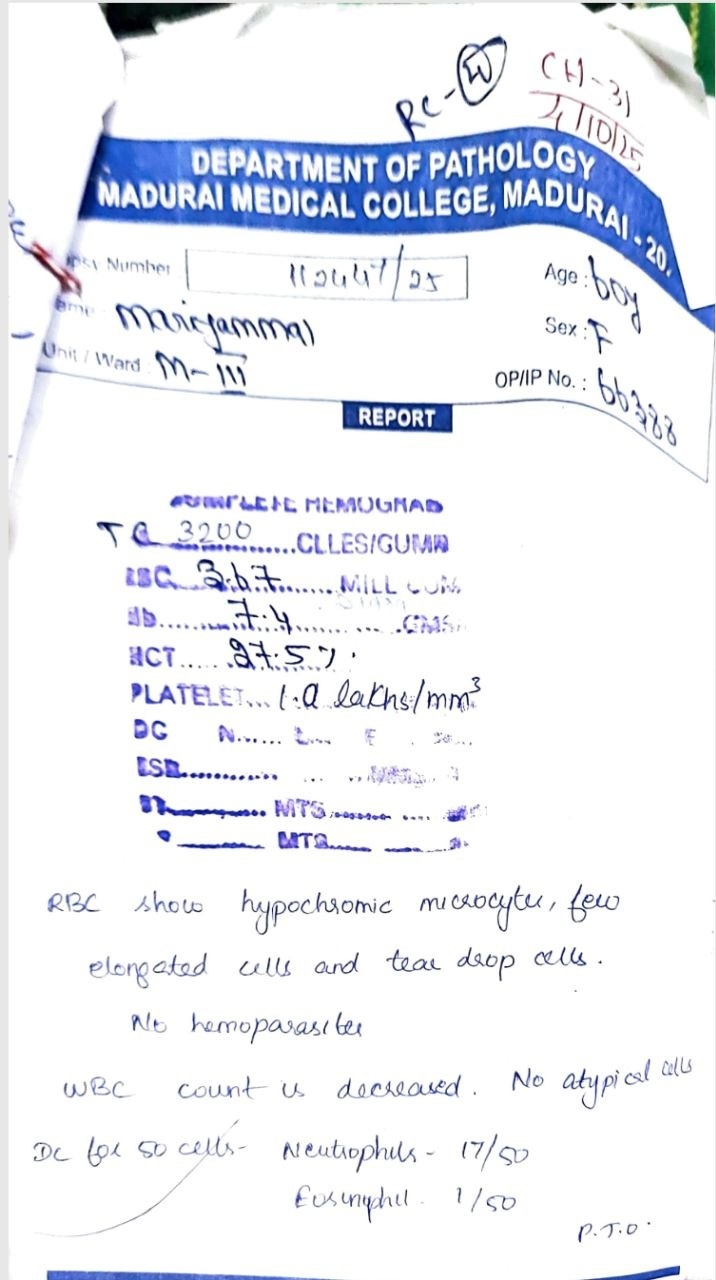 RC-W
CH-31
4/10/25
DEPARTMENT OF PATHOLOGY
MADURAI MEDICAL COLLEGE, MADURAI - 20.
Number 112447/25 Age : 60y
Mariyammal Sex : F
Unit / Ward M-III OP/IP No. : 66388
REPORT
COMPLETE HEMOGRAD
TC 3200 CLLES/CUMM
RBC 3.67 MILL CUM
Hb 7.4 GMS
HCT 27.5%.
PLATELET 1.0 lakhs/mm³
DC N L E
ESR
MTS
MTS
RBC show hypochromic microcytes, few
elongated cells and tear drop cells.
No hemoparasites
WBC count is decreased. No atypical cells
DC for 50 cells- Neutrophils - 17/50
Eosinophil - 1/50
P.T.O.